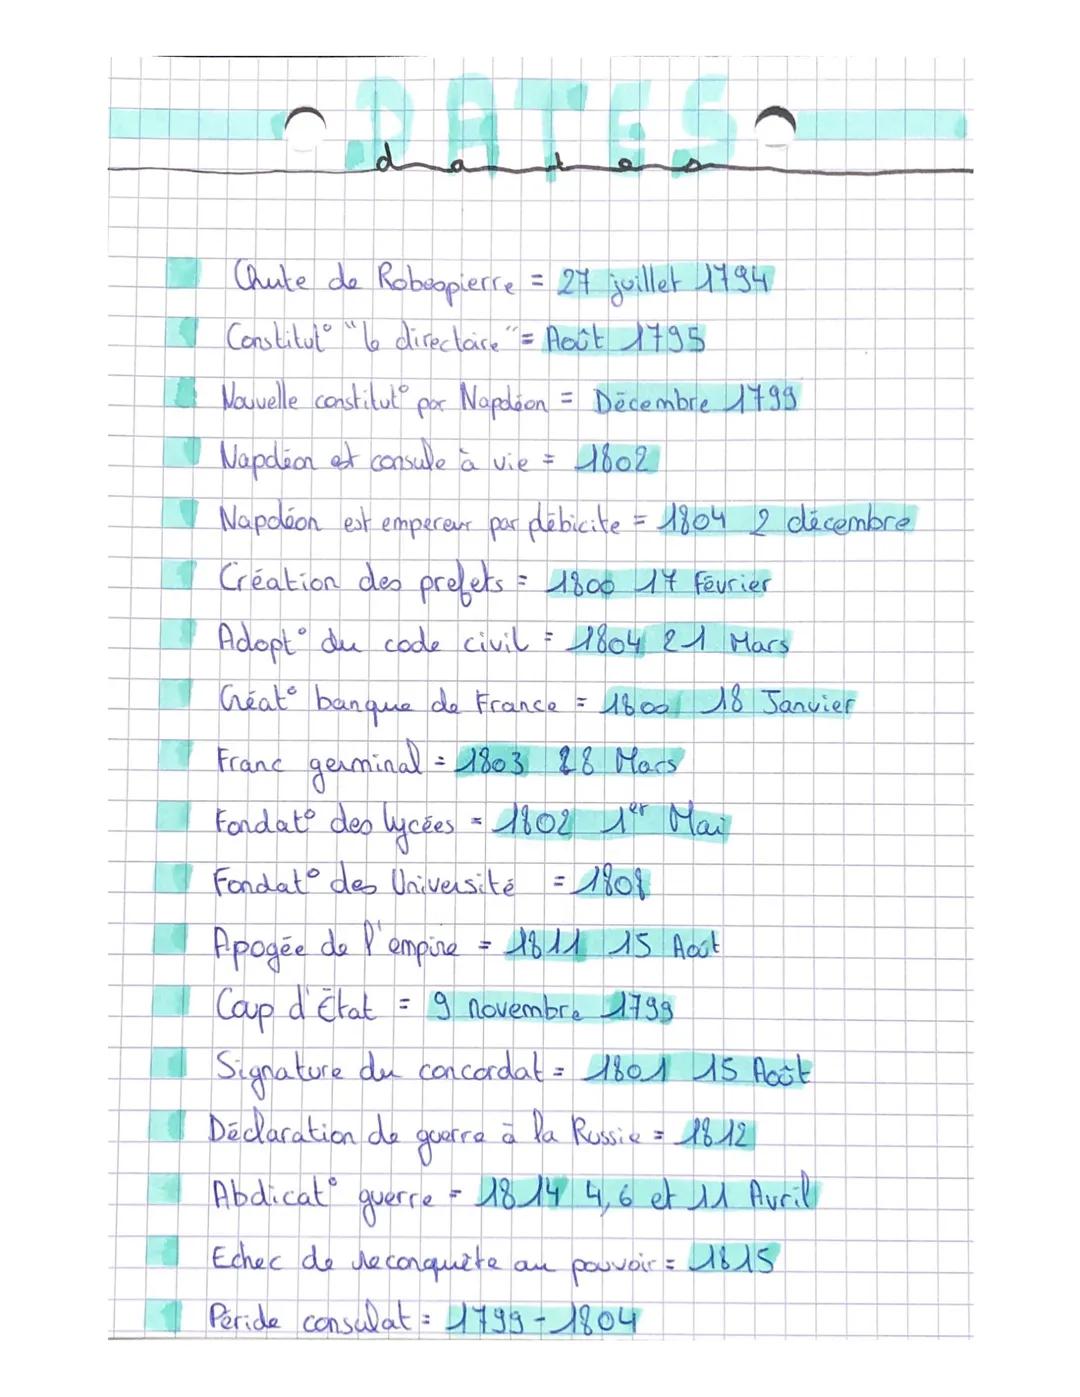 DATES
dates
Chute de Robespierre = 27 juillet 1794
Constitut° "le directoire" = Août 1795
Nouvelle constitut° par Napoléon = Décembre 1799
Napoléon est consule à vie = 1802
Napoléon est empereur par plébicite = 1804 2 décembre
Création des prefets = 1800 17 Février
Adopt° du code civil = 1804 21 Mars
Créat° banque de France = 1800 18 Janvier
Franc germinal = 1803 28 Mars
Fondat° des lycées = 1802 1er Mai
Fondat° des Université = 1808
Apogée de l'empire = 1811 15 Août
Coup d'État = 9 novembre 1799
Signature du concordat = 1801 15 Août
Déclaration de guerre à la Russie = 1812
Abdicat° guerre = 1814 4, 6 et 11 Avril
Echec de reconquête au pouvoir = 1815
Péride consulat = 1799-1804